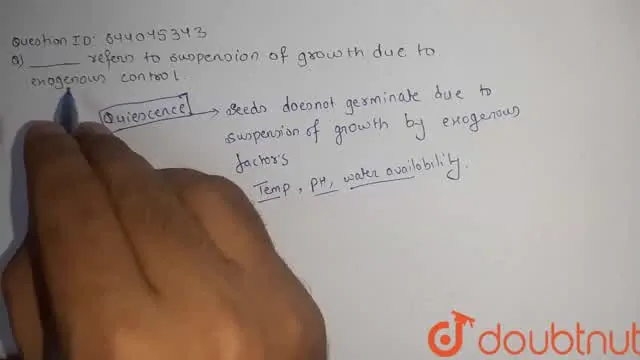 Question ID: 644045343
Q) ______ refers to suspension of growth due to
exogenous control.
Quiescence → seeds doesnot germinate due to
suspension of growth by exogenous
factors
Temp, pH, water availability.
doubtnut